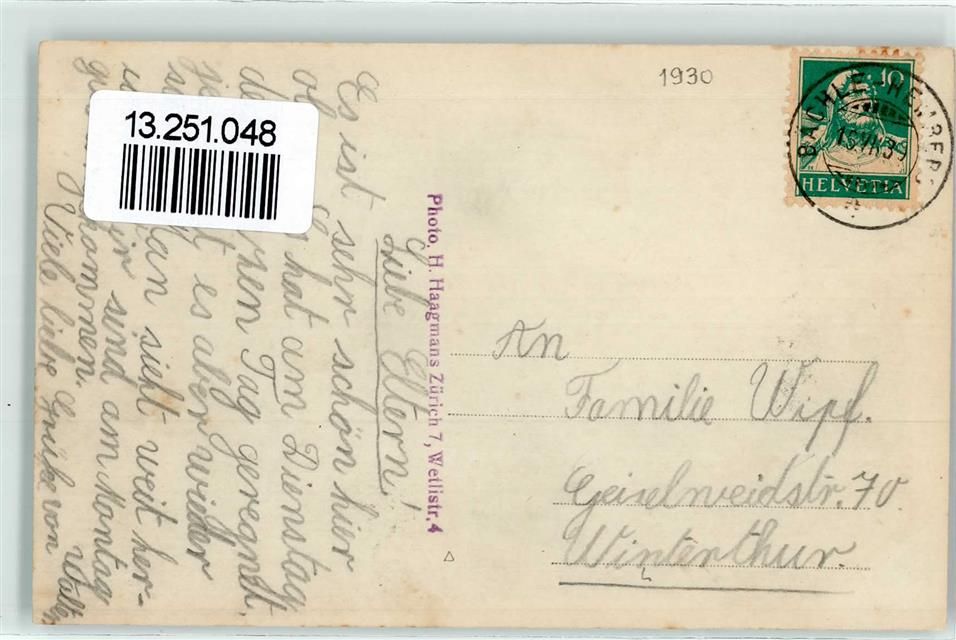 13.251.048
1930
10
BÄCHLE-HEMBERG
HELVETIA
Photo. H. Haagmans Zürich 7, Wetlistr. 4
Liebe Eltern!
Es ist sehr schön hier
ob. hat am Dienstag
Tag geregnet.
es aber wieder
sieht weit her-
wir sind am Montag
gekommen.
Viele liebe Grüße von Walter
An
Familie Wipf.
Geiselweidstr. 70
Winterthur.